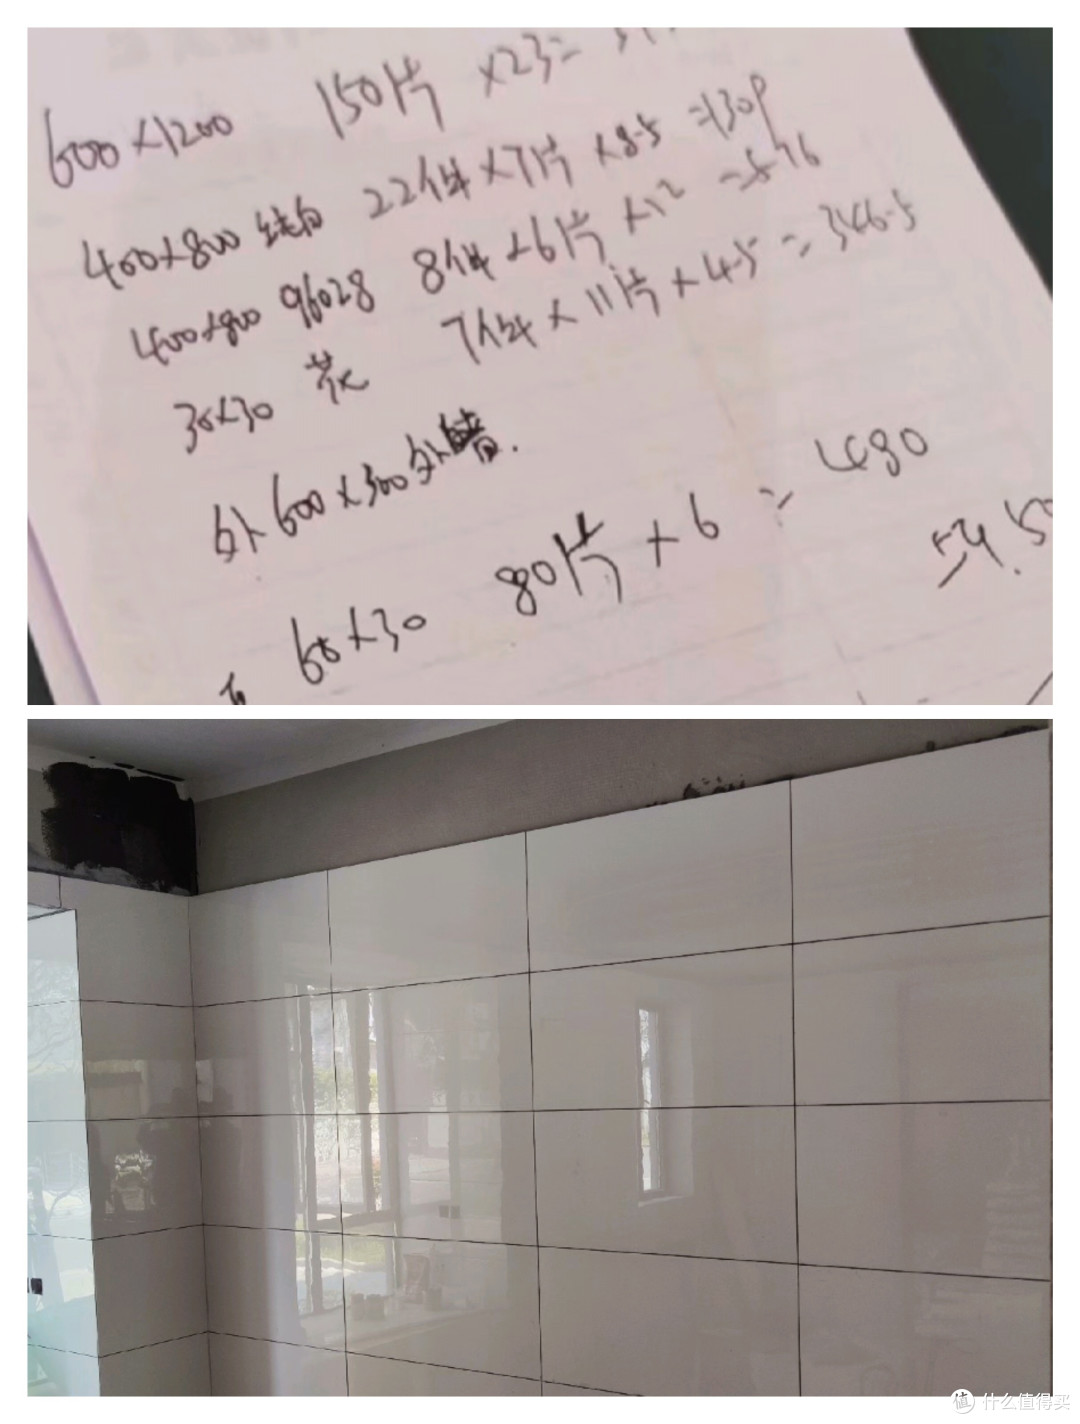 600×1200 150片 ×23=
400×800 纯白 22件×7片×8.5 =1309
400×800 96028 8件×6片×12 =576
30×30 花 7件×11片×4.5=346.5
外600×300外墙.
60×30 80片×6 = 480
54.50
值 什么值得买